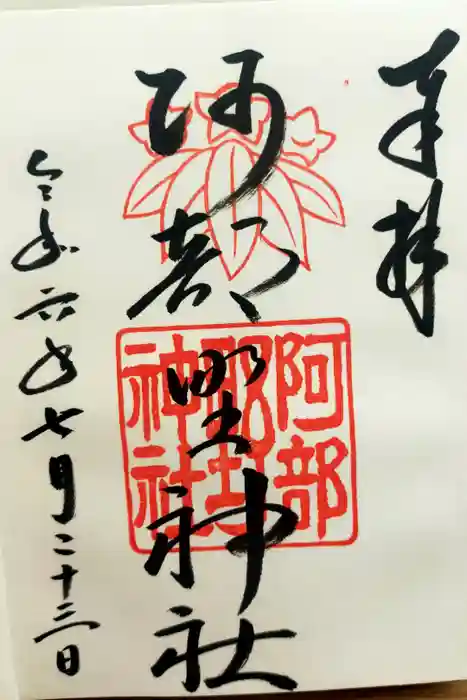 奉拝
阿部野神社
阿部野神社
令和六年七月二十三日